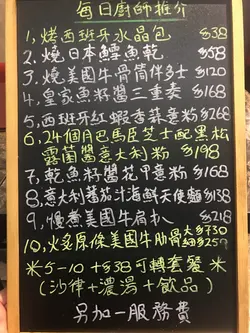 每日廚師推介
1, 烤西班牙水晶包 $38
2. 燒日本鱈魚乾 $58
3, 燒美國牛骨筒伴多士 $120
4, 皇家魚籽醬三重奏 $168
5, 西班牙紅蝦香蒜意粉 $268
6, 24個月巴馬臣芝士配黑松
露菌醬意大利粉 $198
7, 乾魚籽醬花甲意粉 $168
8, 意大利蕃茄汁海鮮天使麵 $138
9, 慢煮美國牛肩扒 $218
10, 火炙原條美國牛肋骨 大$730
細$259
*5-10 +$38可轉套餐*
(沙律+濃湯+飲品)
另加一服務費